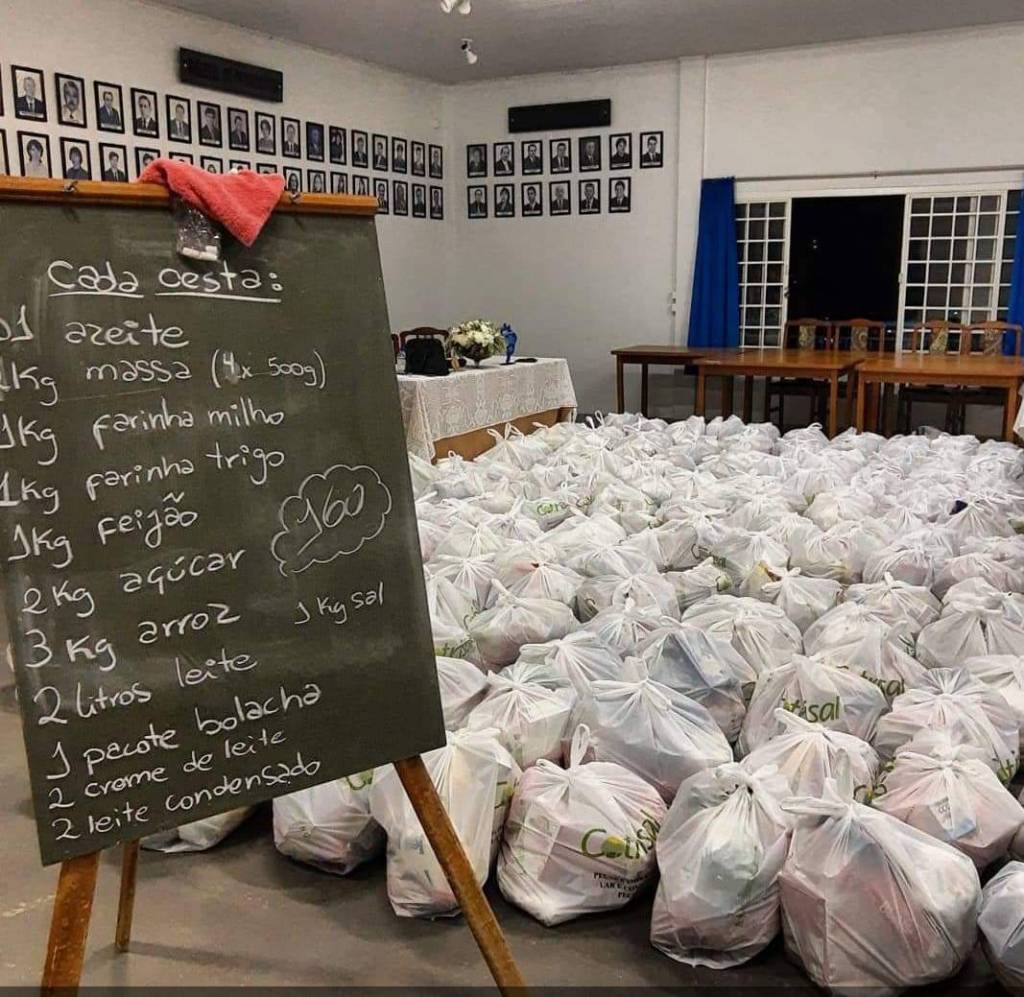 Cada cesta:
01 azeite
2Kg massa (4x 500g)
1Kg farinha milho
1Kg farinha trigo
1Kg feijão
160
2Kg açúcar
3 Kg arroz
1 Kg sal
2 litros leite
1 pacote bolacha
2 creme de leite
2 leite condensado
Cotrisal
Cotrisal